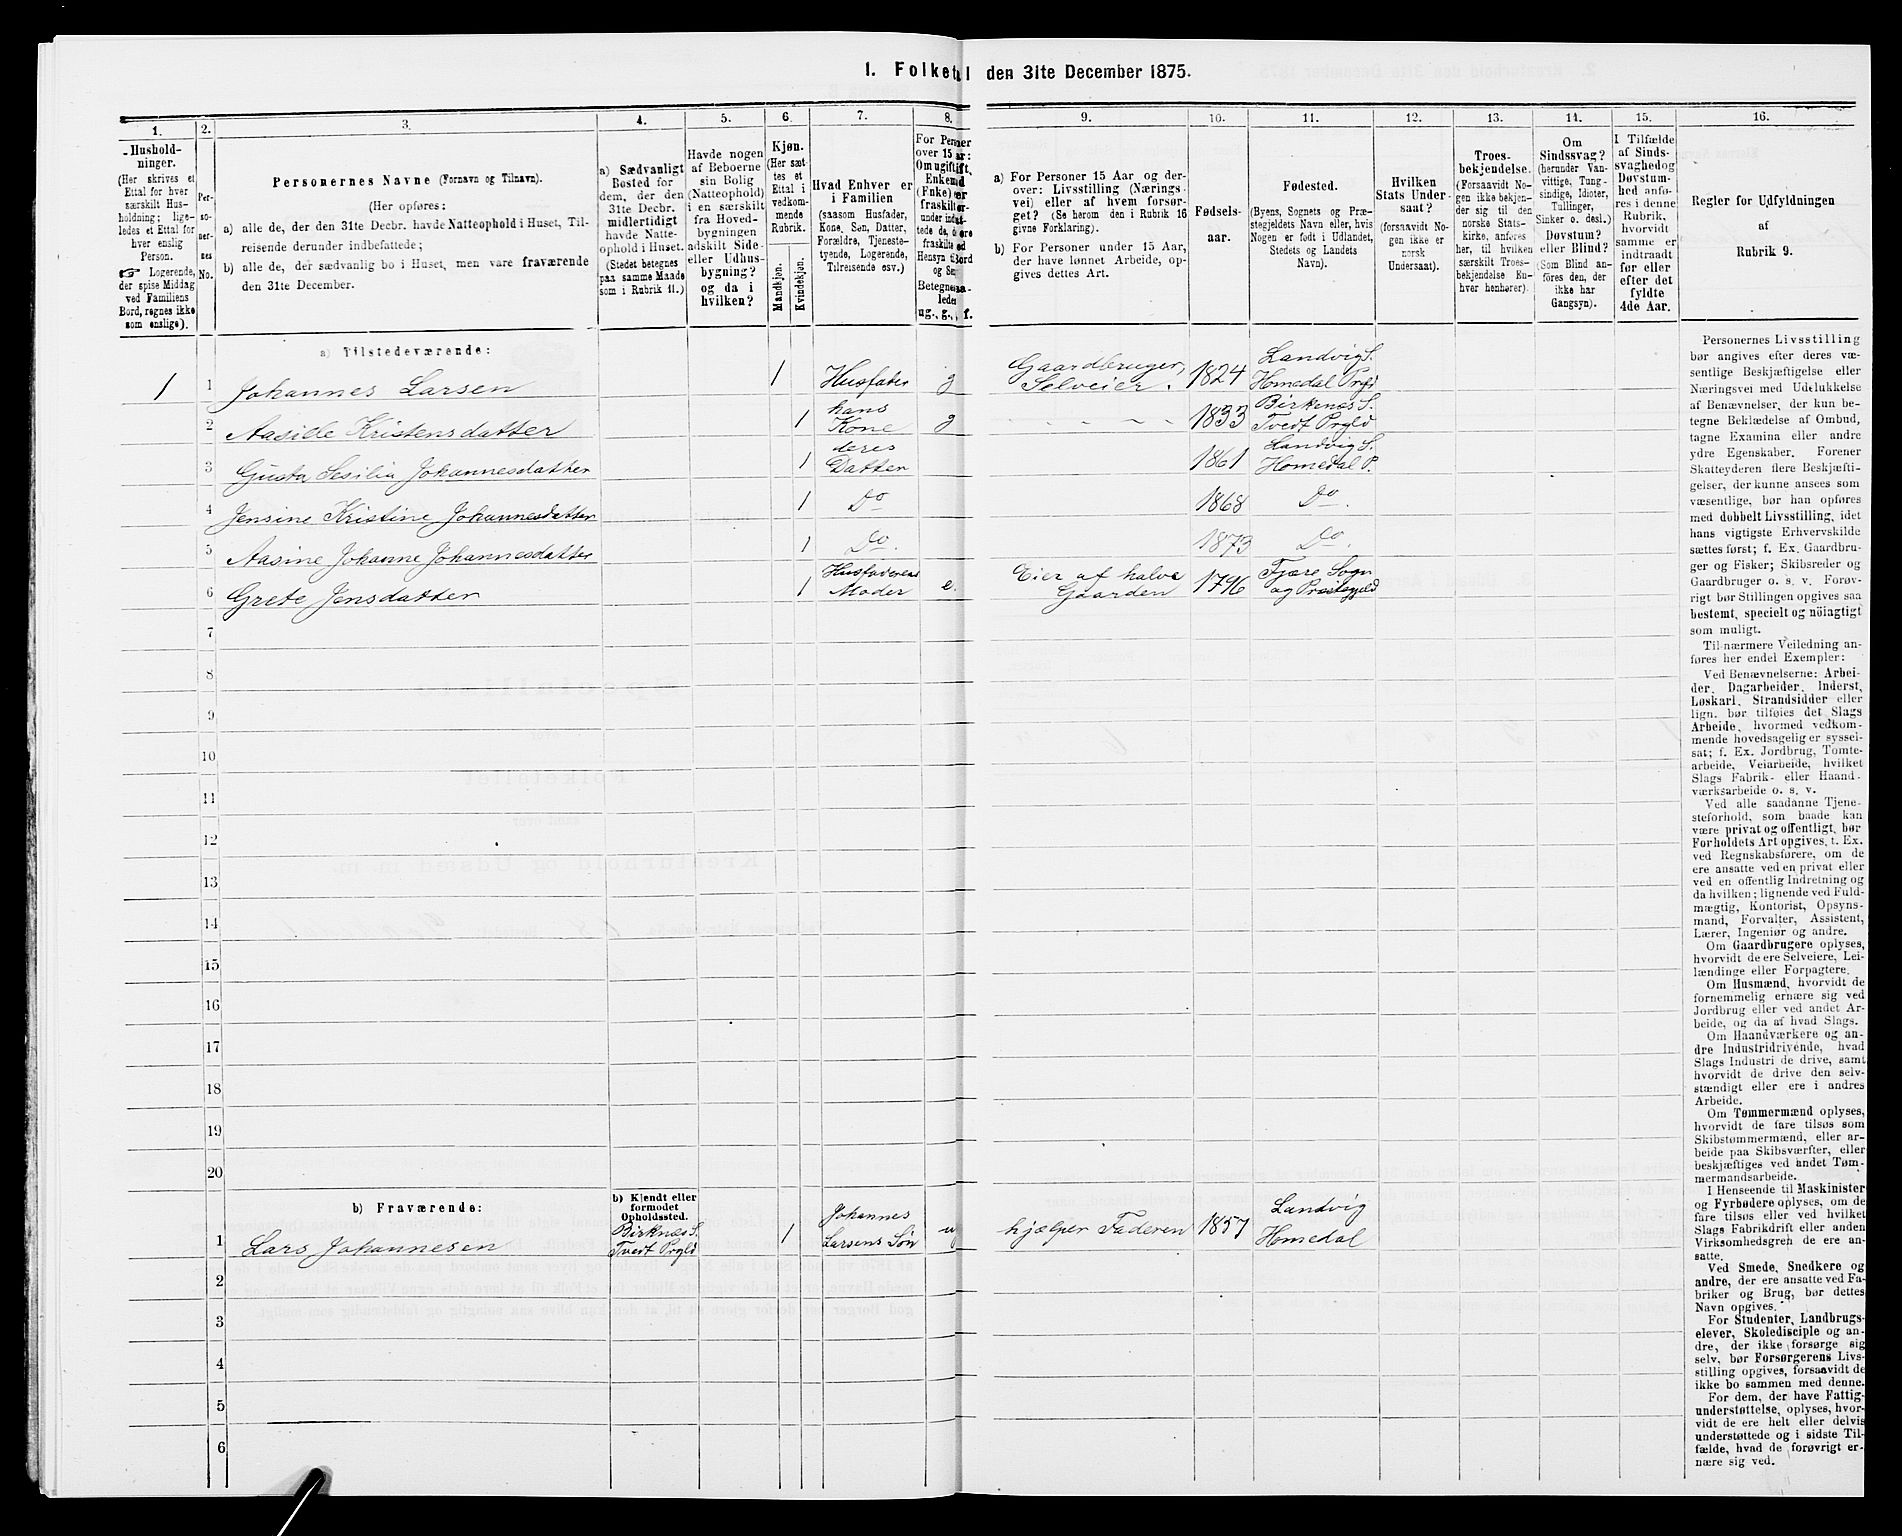 1. Folketal den 31te December 1875.
1.
Hushold-
ninger.
(Her skrives et
Ettal for hver
særskilt Hus-
holdning; lige-
ledes et Ettal for
hver enslig
Person.
☞ Logerende,
der spise Middag
ved Familiens
Bord, regnes ikke
som enslige).
2.
Per-
so-
ner-
nes
No.
3.
Personernes Navne (Fornavn og Tilnavn).
(Her opføres:
a) alle de, der den 31te Decbr. havde Natteophold i Huset, Til-
reisende derunder indbefattede;
b) alle de, der sædvanlig bo i Huset, men vare fraværende
den 31te December.
4.
a) Sædvanligt
Bosted for
dem, der den
31te Decbr.
midlertidigt
havde Natte-
ophold i Huset.
(Stedet betegnes
paa samme Maade
som i Rubrik 11.)
5.
Havde nogen
af Beboerne
sin Bolig
(Natteophold)
i en særskilt
fra Hoved-
bygningen
adskilt Side-
eller Udhus-
bygning?
og da i
hvilken?
6.
Kjøn.
(Her sæt-
tes et
Ettal i
vedkom-
mende
Rubrik.
Mandkjøn.
Kvindekjøn.
7.
Hvad Enhver er
i Familien
(saasom Husfader,
Kone, Søn, Datter,
Forældre, Tjeneste-
tyende, Logerende,
Tilreisende osv.)
8.
9.
a) For Personer 15 Aar og der-
over: Livsstilling (Nærings-
vei) eller af hvem forsør-
get? (Se herom den i Rubrik 16
givne Forklaring).
b) For Personer under 15 Aar,
der have lønnet Arbeide, op-
gives dettes Art.
10.
Fødsels-
aar.
11.
Fødested.
(Byens, Sognets og Præ-
stegjeldets Navn eller, hvis
Nogen er født i Udlandet,
Stedets og Landets
Navn).
12.
Hvilken
Stats Under-
saat?
(forsaavidt No-
gen ikke er
norsk
Undersaat).
13.
Troes-
bekjendelse.
(Forsaavidt No-
gen ikke bekjen-
der sig til den
norske Stats-
kirke, anføres
her, til hvilken
særskilt Troes-
bekjendelse En-
hver henhører).
14.
Om
Sindssvag?
(herunder Van-
vittige, Tung-
sindige, Idioter,
Tullinger,
Sinker o. desl.)
Døvstum?
eller Blind?
(Som Blind an-
føres den, der
ikke har
Gangsyn).
15.
I Tilfælde
af Sinds-
svaghed og
Døvstum-
hed anfø-
res i denne
Rubrik,
hvorvidt
samme er
indtraadt
før eller
efter det
fyldte
4de Aar.
16.
Regler for Udfyldningen
af
Rubrik 9.
a) Tilstedeværende:
1 1 Johannes Larsen 1 Husfader g Gaardbruger, Selveier. 1824 Landvig S. Homedal Prgj
2 Aasille Kristensdatter 1 hans Kone g 1833 Birkenæs S. Tvedt Prgld
3 Gusta Sesilia Johannesdatter 1 deres Datter 1861 Landvig S. Homedal P.
4 Jensine Kristine Johannesdatter 1 Do 1868 Do.
5 Aasine Johanne Johannesdatter 1 Do. 1873 Do.
6 Grete Jensdatter 1 Husfaderens Moder e. Eier af halve Gaarden 1796 Fjære Sogn og Præstegjeld
7
8
9
10
11
12
13
14
15
16
17
18
19
20
b) Fraværende:
b) Kjendt eller
formodet
Opholdssted.
1 Lars Johannesen Birknæs S. Tvedt Prgld 1 Johannes Larsens Søn ug hjælper Faderen 1857 Landvig Homedal
2
3
4
5
6
Personernes Livsstilling
bør angives efter deres væ-
sentlige Beskjæftigelse eller
Næringsvei med Udelukkelse
af Benævnelser, der kun be-
tegne Beklædelse af Ombud,
tagne Examina eller andre
ydre Egenskaber. Forener
Skatteyderen flere Beskjæfti-
gelser, der kunne ansees som
væsentlige, bør han opføres
med dobbelt Livsstilling, idet
hans vigtigste Erhvervskilde
sættes først; f. Ex. Gaardbru-
ger og Fisker; Skibsreder og
Gaardbruger o. s. v. Forøv-
rigt bør Stillingen opgives saa
bestemt, specielt og nöiagtigt
som muligt.
Til nærmere Veiledning an-
føres her endel Exempler:
Ved Benævnelserne: Arbei-
der, Dagarbeider, Inderst,
Løskarl, Strandsidder eller
lign. bør tilføies det Slags
Arbeide, hvormed vedkom-
mende hovedsagelig er syssel-
sat; f. Ex. Jordbrug, Tomte-
arbeide, Veiarbeide, hvilket
Slags Fabrik- eller Haand-
værksarbeide o. s. v.
Ved alle saadanne Tjene-
steforhold, som baade kan
være privat og offentligt, bør
Forholdets Art opgives, t. Ex.
ved Regnskabsførere, om de
ere ansatte ved en privat eller
ved en offentlig Indretning og
da hvilken; lignende ved Fuld-
mægtig, Kontorist, Opsyns-
mand, Forvalter, Assistent,
Lærer, Ingeniør og andre.
Om Gaardbrugere oplyses,
hvorvidt de ere Selveiere, Lei-
lændinge eller Forpagtere.
Om Husmænd, hvorvidt de
fornemmelig ernære sig ved
Jordbrug eller ved andet Ar-
beide, og da af hvad Slags.
Om Haandværkere og an-
dre Industridrivende, hvad
Slags Industri de drive, samt
hvorvidt de drive den selv-
stændigt eller ere i andres
Arbeide.
Om Tømmermænd oplyses,
hvorvidt de fare tilsøs som
Skibstømmermænd, eller ar-
beide paa Skibsværfter, eller
beskjæftiges ved andet Tøm-
mermandsarbeide.
I Henseende til Maskinister
og Fyrbødere oplyses, om de
fare tilsøs eller ved hvilket
Slags Fabrikdrift eller anden
Virksomhedsgren de ere an-
satte.
Ved Smede, Snedkere og
andre, der ere ansatte ved Fa-
briker og Brug, bør dettes
Navn opgives.
For Studenter, Landbrugs-
elever, Skoledisciple og an-
dre, der ikke forsørge sig
selv, bør Forsørgerens Livs-
stilling opgives, forsaavidt de
ikke bo sammen med denne.
For dem, der have Fattig-
understøttelse, oplyses, hvor-
vidt de ere helt eller delvis
understøttede og i sidste Til-
fælde, hvad de forøvrigt er-
nære sig ved.